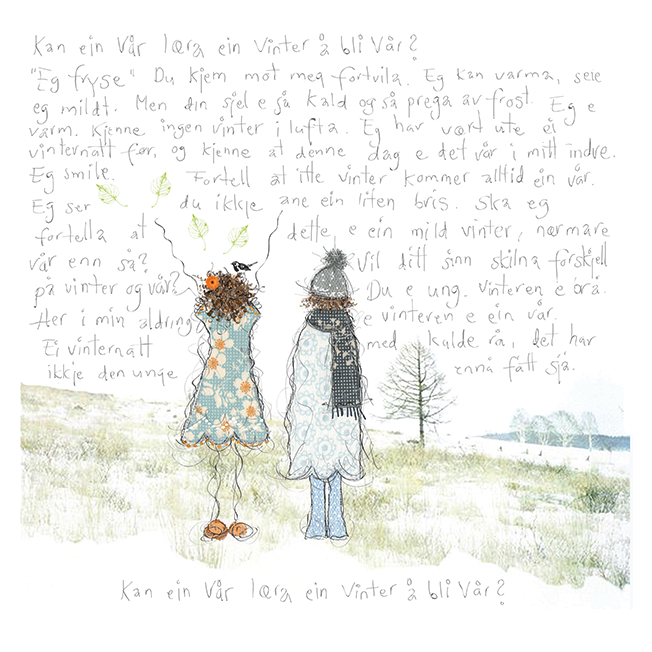 Kan ein vår læra ein vinter å bli vår?
"Eg fryse" Du kjem mot meg fortvila. Eg kan varma, seie
eg mildt. Men din sjel e så kald og så prega av frost. Eg e
varm. Kjenne ingen vinter i lufta. Eg har vært ute ei
vinternatt før, og kjenne at denne dag e det vår i mitt indre.
Eg smile. Fortell at itte vinter kommer alltid ein vår.
Eg ser du ikkje ane ein liten bris. Ska eg
fortella at dette e ein mild vinter, nærmare
vår enn så? Vil ditt sinn skilna forskjell
på vinter og vår? Du e ung. Vinteren e brå.
Her i min aldring e vinteren e ein vår.
Ei vinternatt med kalde rå, det har
ikkje den unge ennå fått sjå.
Kan ein vår læra ein vinter å bli vår?